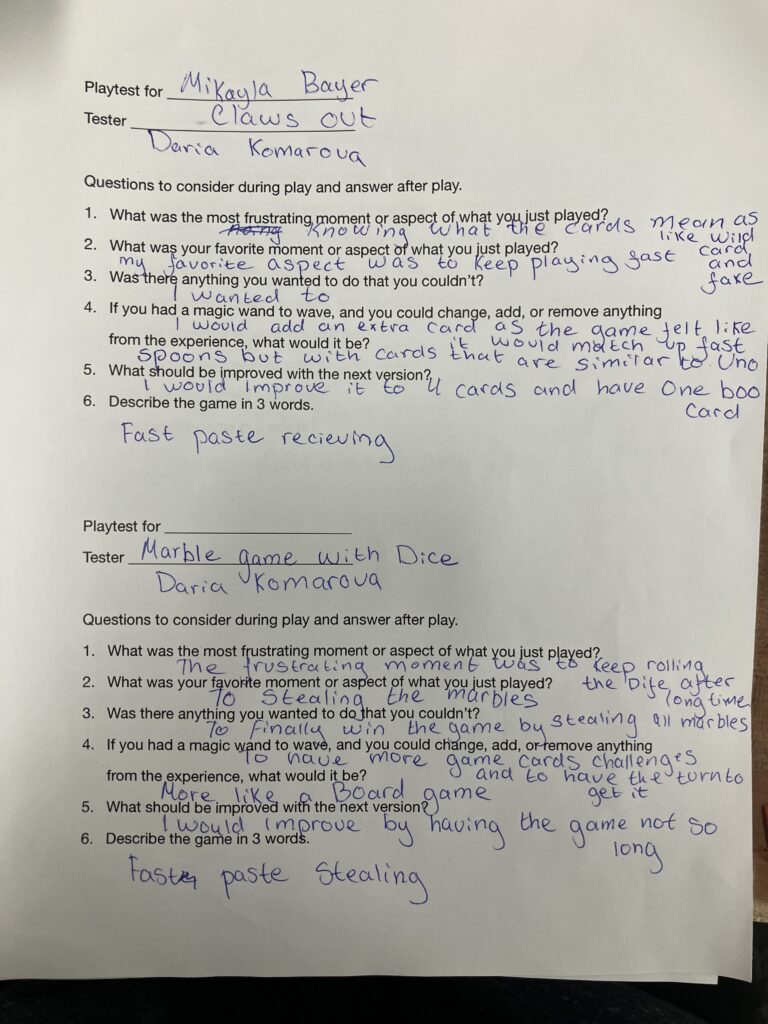 Playtest for Mikayla Bayer
Tester Claws out
Daria Komarova
Questions to consider during play and answer after play.
1. What was the most frustrating moment or aspect of what you just played?
Knowing what the cards mean as
like wild
card
and
fake
2. What was your favorite moment or aspect of what you just played?
my favorite aspect was to keep playing fast
3. Was there anything you wanted to do that you couldn't?
I wanted to
4. If you had a magic wand to wave, and you could change, add, or remove anything
I would add an extra card as the game felt like
from the experience, what would it be? it would match up fast
spoons but with cards that are similar to Uno
5. What should be improved with the next version?
I would improve it to 4 cards and have One boo
card
6. Describe the game in 3 words.
Fast paste recieving
Playtest for
Tester Marble game with Dice
Daria Komarova
Questions to consider during play and answer after play.
1. What was the most frustrating moment or aspect of what you just played?
The frustrating moment was to keep rolling
the Dife after
long time
2. What was your favorite moment or aspect of what you just played?
To stealing the marbles
3. Was there anything you wanted to do that you couldn't?
To Finally win the game by stealing all marbles
4. If you had a magic wand to wave, and you could change, add, or remove anything
To have more game cards challenges
from the experience, what would it be? and to have the turn to
get it
More like a Board game
5. What should be improved with the next version?
I would improve by having the game not so
long
6. Describe the game in 3 words.
Fast paste Stealing